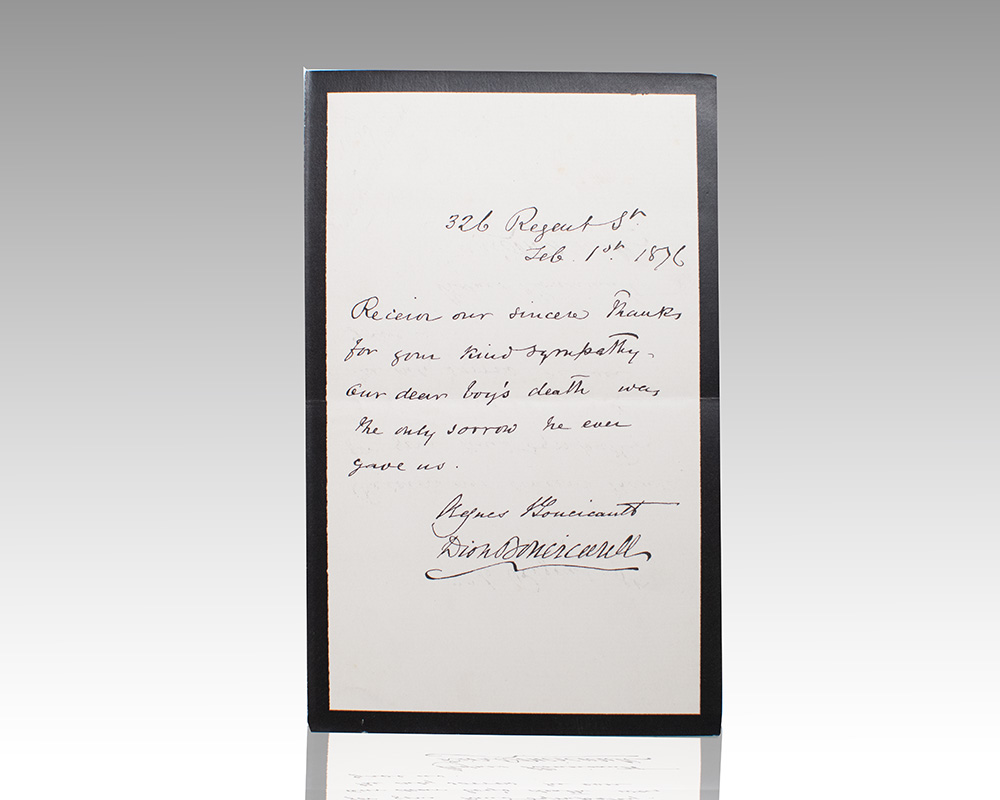 326 Regent St.
Feb. 1st. 1876
Receive our sincere Thanks
for your kind sympathy.
Our dear boy's death was
the only sorrow he ever
gave us.
Agnes Boucicault
Dion Boucicault